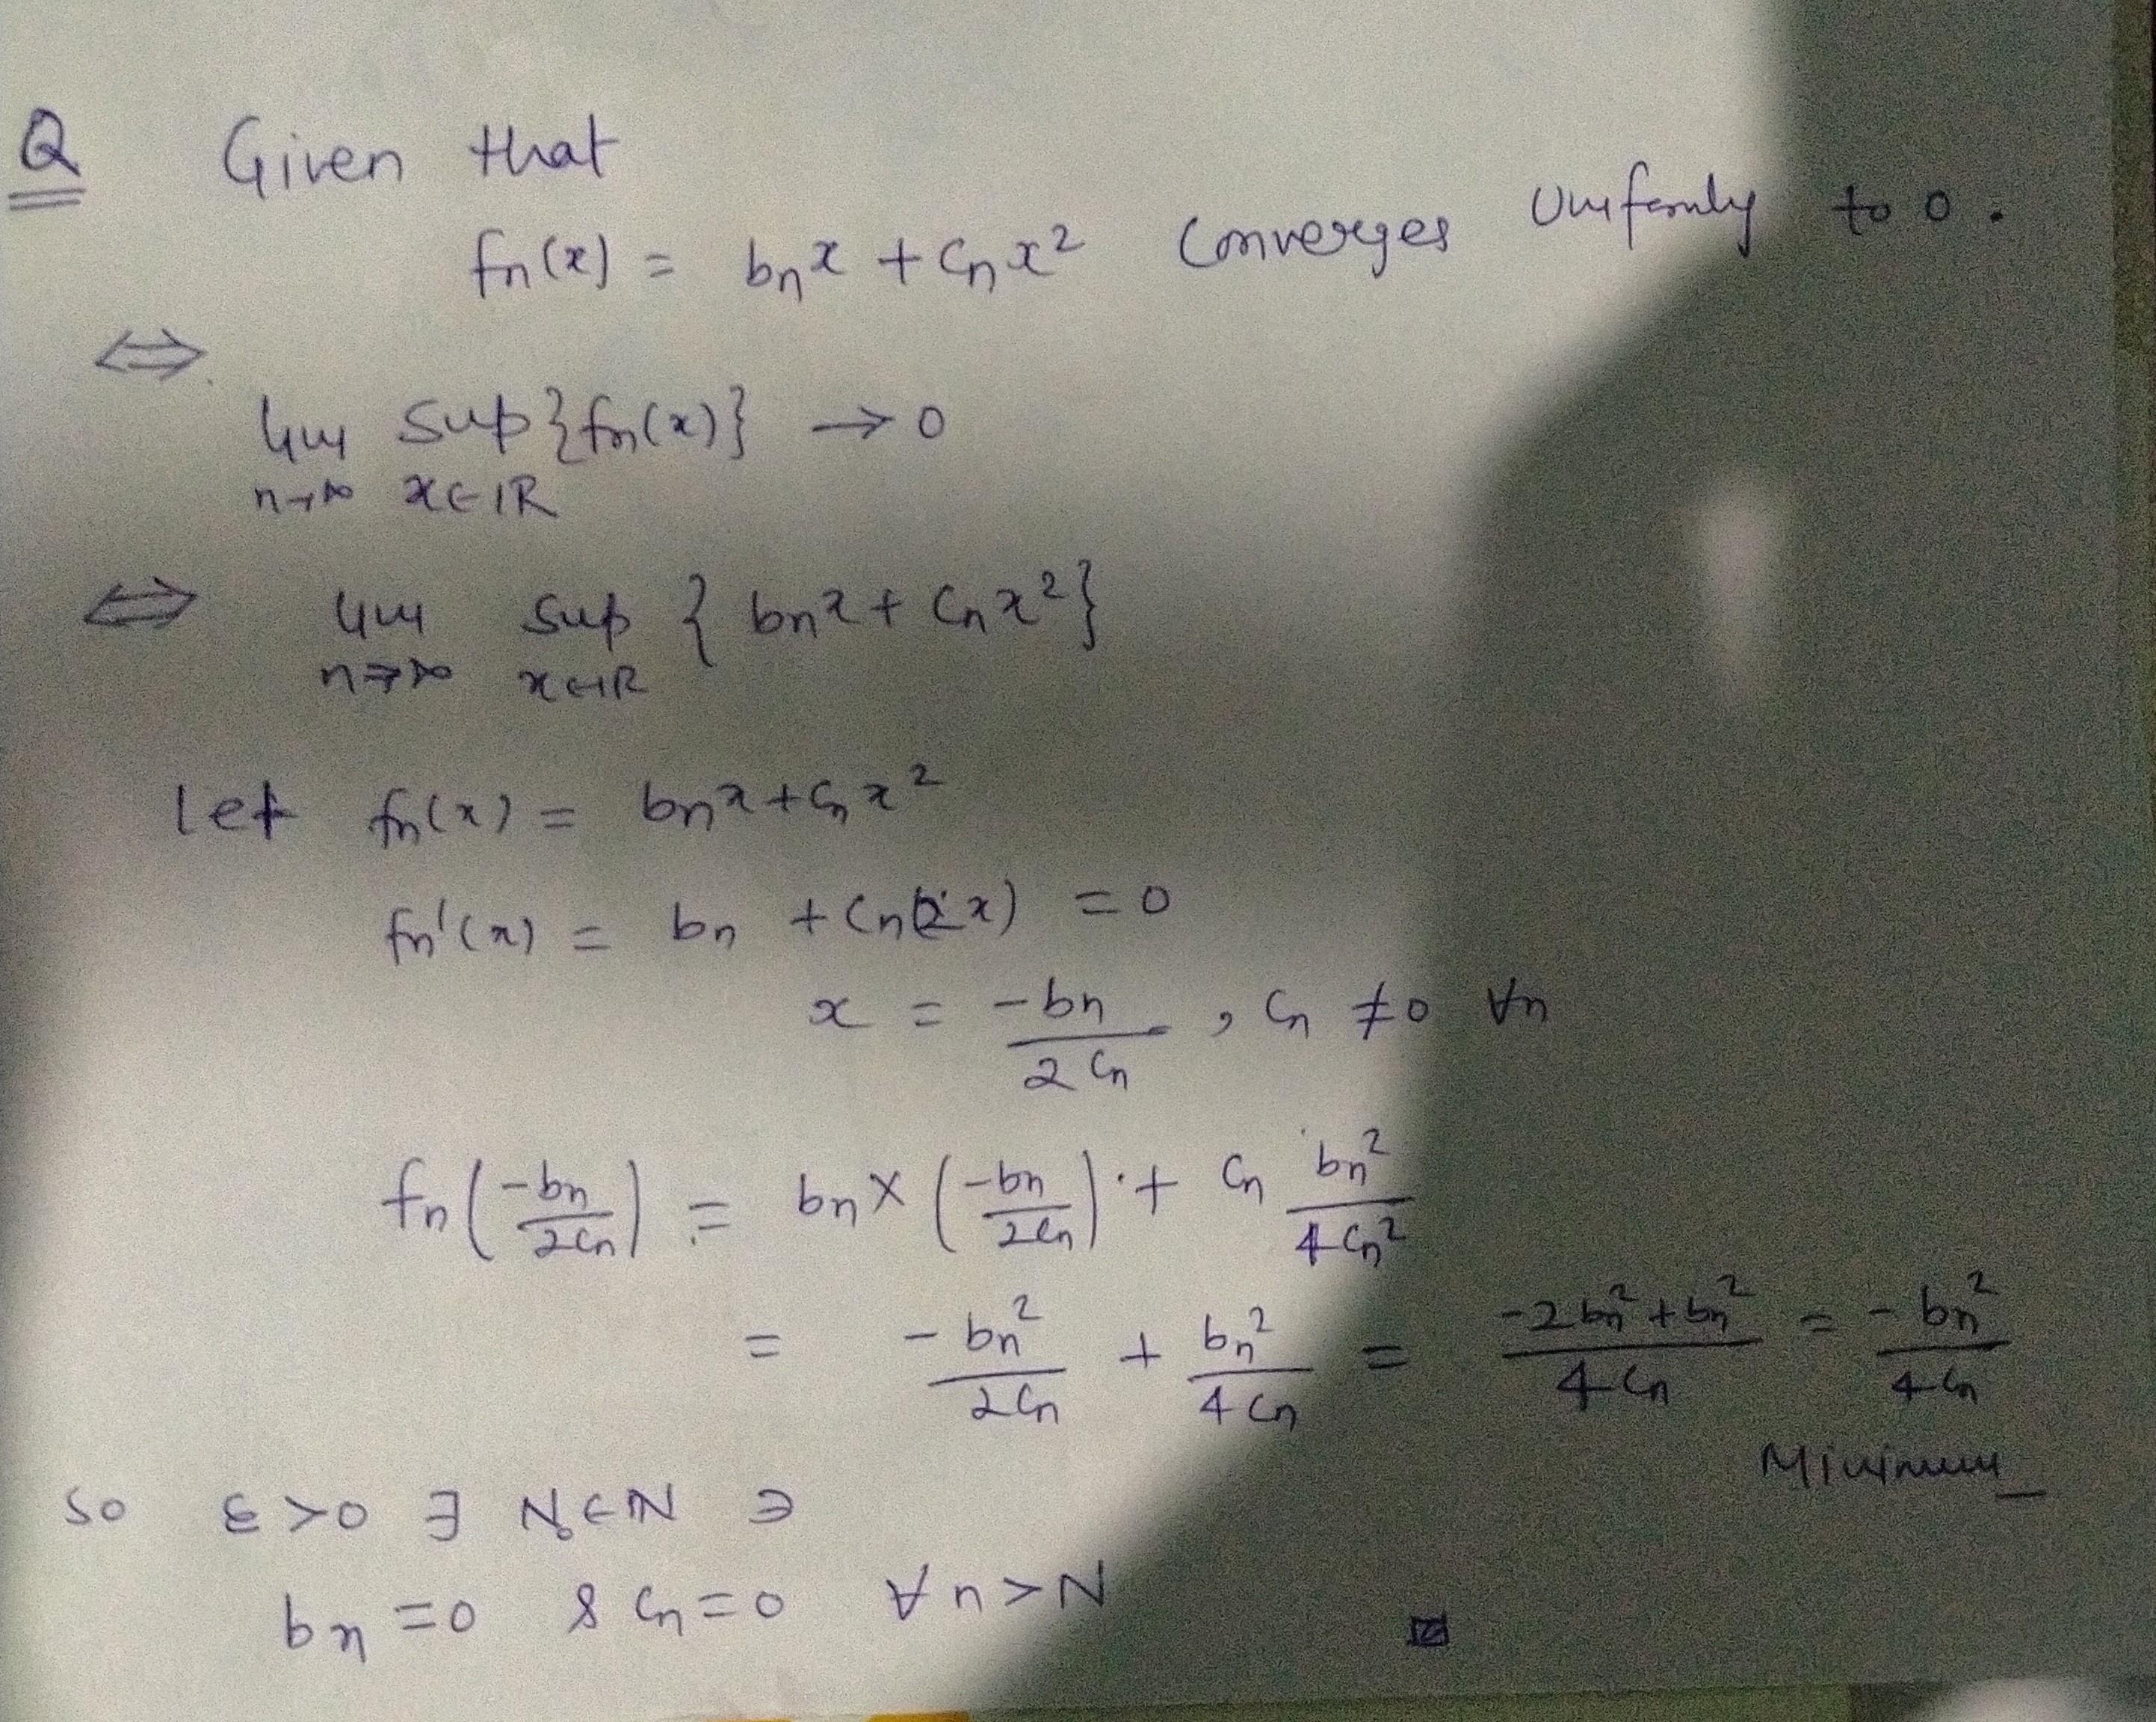 Q Given that
fn(x) = bnx + cnx² Converges Uniformly to 0.
⇔
lim sup{fn(x)} → 0
n→∞ x∈IR
⇔ lim sup { bnx + cnx²}
n→∞ x∈IR
let fn(x) = bnx + cnx²
fn'(x) = bn + cn(2x) = 0
x = -bn/2cn , cn ≠ 0 ∀n
fn(-bn/2cn) = bn × (-bn/2cn) + cn bn²/4cn²
= -bn²/2cn + bn²/4cn = -2bn²+bn²/4cn = -bn²/4cn
Minimum
so ε>0 ∃ N₀∈IN ∋
bn = 0 & cn = 0 ∀ n>N